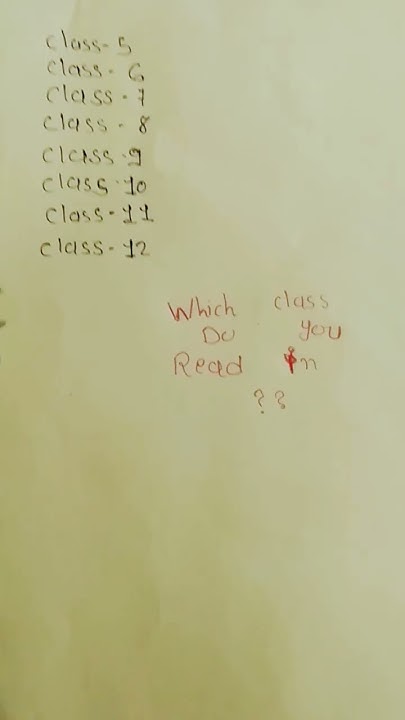 class-5
class-6
class-7
class-8
class-9
class-10
class-11
class-12
Which class
Do you
Read in
??